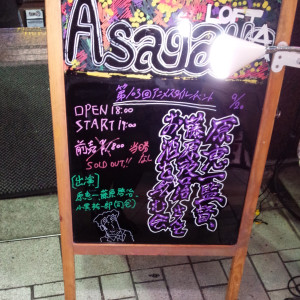 Asagaya
LOFT
A
第103回アニメスタイルイベント
OPEN 18:00
START 19:00
前売¥1,800 当日なし
SOLD OUT!!
[出演]
原恵一、藤原啓治、
小黒祐一郎(司会)
原恵一監督、
藤原啓治さん